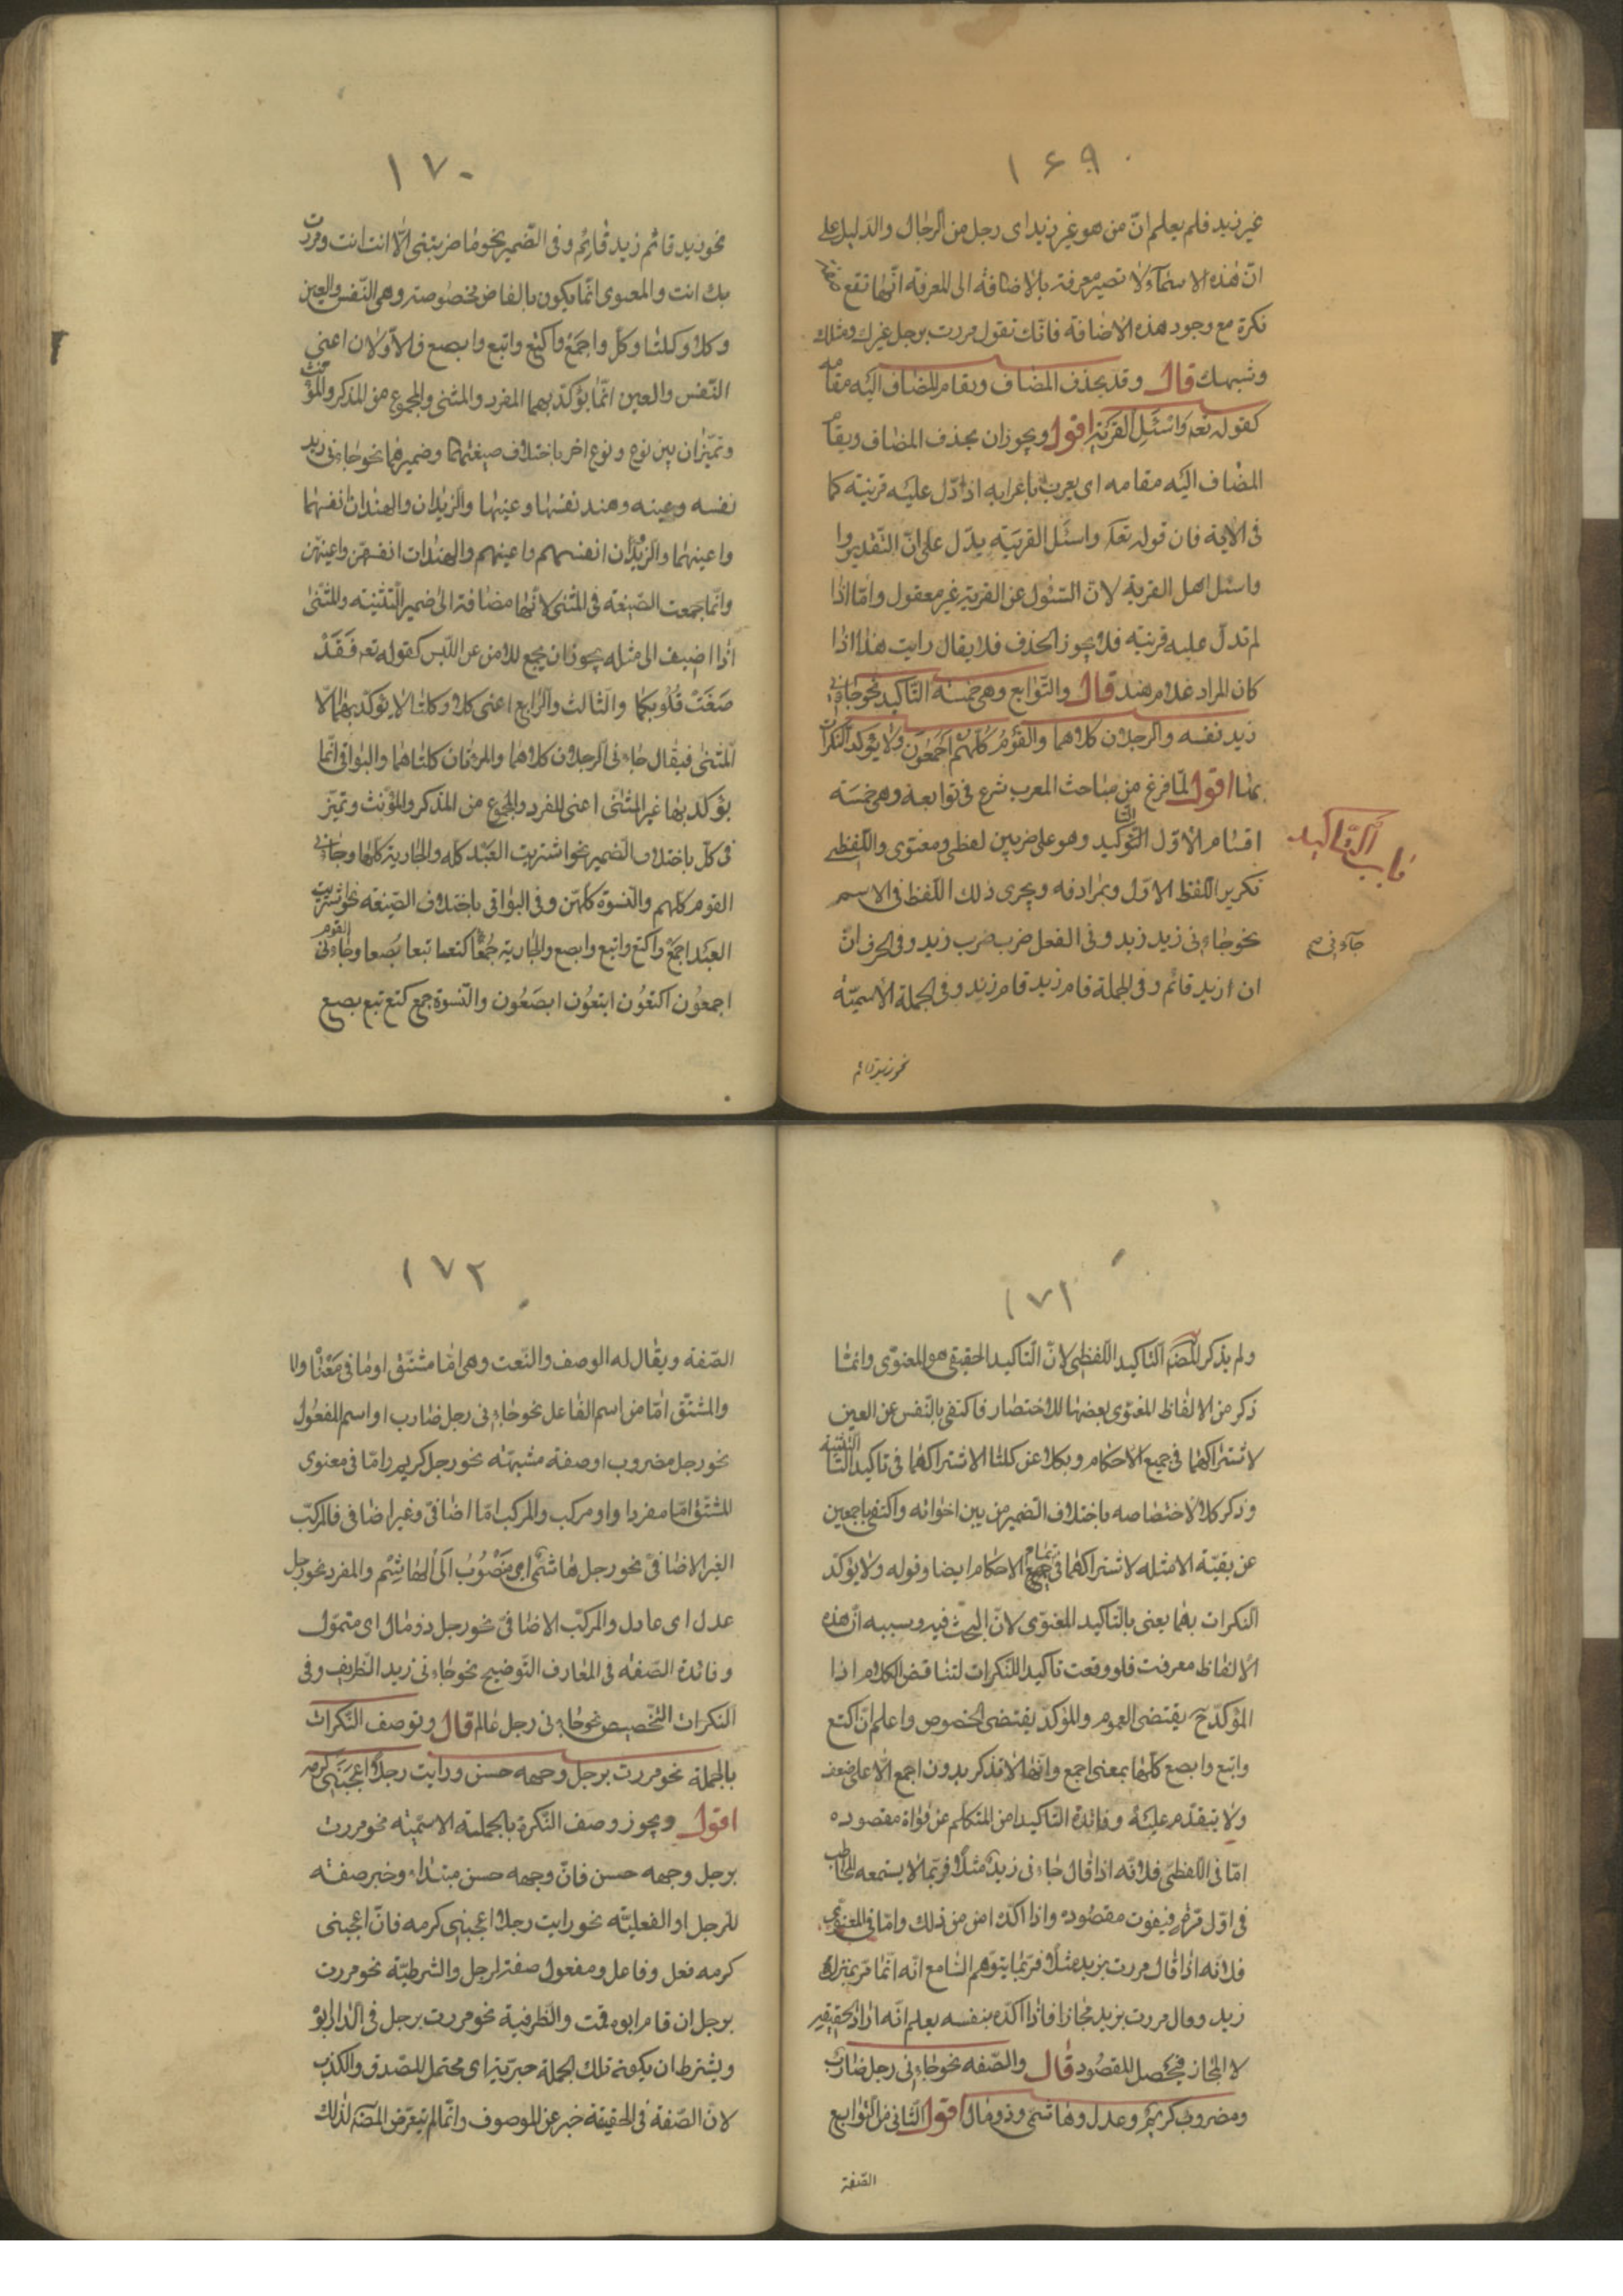 ١۶٩
غير زيد فلم يعلم انّ من هو غير زيد اى رجل من الرجال والدليل على
انّ هذه الاسماء لا تصير معرفة بالاضافة الى المعرفة انّها تقع
نكرة مع وجود هذه الاضافة فانّك تقول مررت برجل غيرك ومثلك
وشبهك قال وقد يحذف المضاف ويقام المضاف اليه مقامه
كقوله تعه واسئل القرية اقول ويجوز ان يحذف المضاف ويقام
المضاف اليه مقامه اى يعرب باعرابه اذا دلّ عليه قرينة كما
فى الاية فان قوله تعه واسئل القرية يدّل على انّ التقدير وا
واسئل اهل القرية لانّ السئول عن القرية غير معقول وامّا اذا
لم تدلّ عليه قرينة فلا يجوز الحذف فلا يقال رايت هندا اذا
كان المراد غلام هند قال والتوابع وهى خمسة التاكيد نحو جاءنى
زيد نفسه والرجلان كلاهما والقوم كلهم اجمعون ولا يؤكد النكرات
بها اقول لمّا فرغ من مباحث المعرب شرع فى توابعه وهى خمسه
باب التاكيد
اقسام الاوّل التوكيد وهو على ضربين لفظى ومعنوى واللفظى
تكرير اللفظ الاوّل وبمرادفه ويجرى ذلك اللفظ فى الاسم
نحو جاءنى زيد زيد وفى الفعل ضرب ضرب زيد وفى الحرف انّ
جاءنى صح
ان زيد قائم وفى الجملة قام زيد قام زيد وفى الجملة الاسميّة
نحو زيد قائم
١٧٠
نحو زيد قائم زيد قائم وفى الضمير نحو ما ضربتنى الّا انت انت ومررت
بك انت والمعنوى انّما يكون بالفاض مخصوصة وهى النّفس والعين
وكلا وكلتا وكلّ واجمع واكتع واتبع وابصع فالاوّلان اعنى
النّفس والعين انّما يؤكّد بهما المفرد والمثنى والمجموع من المذكر والمؤنث
وتميّزان بين نوع ونوع اخر باختلاف صيغتهما وضميرهما نحو جاءنى زيد
نفسه وعينه وهند نفسها وعينها والزيدان والهندان انفسهما
واعينهما والزيدون انفسهم واعينهم والهندات انفسهنّ واعينهنّ
وانّما جمعت الصّيغة فى المثنى لانّها مضافة الى ضمير التثنيه والمثنى
اذا اضيف الى مثله يجوز ان يجمع للامن عن اللبس كقوله تعه فقد
صغت قلوبكما والثالث والرابع اعنى كلا وكلتا لا يؤكد بهما الّا
المثنى فيقال جاءنى الرجلان كلاهما والمرئتان كلتاهما والبواقى انّما
يؤكد بها غير المثنى اعنى المفرد والمجموع من المذكر والمؤنث وتميّز
فى كلّ باختلاف الضمير نحو اشتريت العبد كله والجارية كلها وجاءنى
القوم كلهم والنسوة كلهنّ وفى البواقى باختلاف الصّيغه نحو اشتريت
العبد اجمع واكتع واتبع وابصع والجارية جمعا كتعا تبعا بصعا وجاءنى القوم
اجمعون اكتعون ابتعون ابصعون والنسوة جمع كتع تبع بصع
١٧١
ولم يذكر المصنّف التاكيد اللفظى لانّ التاكيد الحقيقى هو المعنوى وانّما
ذكر من الالفاظ المعنوى بعضها للاختصار فاكتفى بالنّفس عن العين
لاشتراكهما فى جميع الاحكام وبكلا عن كلتا لاشتراكهما فى تاكيد التثنية
وذكر كلا لاختصاصه باختلاف الضمير من بين اخواته واكتفى باجمعين
عن بقيّة الامثله لاشتراكهما فى تمام الاحكام ايضا وقوله ولا يؤكد
النكرات بها يعنى بالتاكيد المعنوى لانّ البحث فيه وسببه انّ هذه
الالفاظ معرفة فلو وقعت تاكيدا للنكرات لتناقض الكلام اذا
المؤكد ح يقتضى العموم والمؤكد يقتضى الخصوص واعلم انّ اكتع
واتبع وابصع كلّها بمعنى اجمع وانّها لا تذكر بدون اجمع الّا على ضعف
ولا يتقدّم عليه وفائدة التاكيد امن المتكلم عن فوات مقصوده
امّا فى اللفظىّ فلانّه اذا قال جاءنى زيد مثلا فربّما لا يسمعه المخاطب
فى اوّل مرّة فيفوت مقصوده واذا اكّد امن من ذلك وامّا فى المعنوى
فلانّه اذا قال مررت بزيد مثلا فربّما يتوهم السّامع انّه انّما مرّ بمنزله
زيد وقال مررت بزيد مجازا فاذا اكده بنفسه يعلم انّه اراد الحقيقة
لا المجاز فيحصل المقصود قال والصّفه نحو جاءنى رجل ضارب
ومضروب كريم وعدل وهاشمى وذو مال اقول الثانى من التوابع
الصّفة
١٧٢
الصّفة ويقال له الوصف والنّعت وهى امّا مشتّق او ما فى معناه والا
والمشتّق امّا من اسم الفاعل نحو جاءنى رجل ضارب او اسم المفعول
نحو رجل مضروب او صفة مشبهّة نحو رجل كريم وامّا فى معنوى
المشتّق امّا مفردا واو مركب والمركب امّا اضافىّ وغير اضافى فالمركّب
الغير الاضافىّ نحو رجل هاشمى اى منصوب الى الهاشم والمفرد نحو رجل
عدل اى عادل والمركّب الاضافىّ نحو رجل ذو مال اى متموّل
وفائدة الصّفه فى المعارف التّوضيح نحو جاءنى زيد الظريف وفى
النكرات التّخصيص نحو جاءنى رجل عالم قال وتوصف النّكرات
بالجملة نحو مررت برجل وجهه حسن ورايت رجلا اعجبنى كرمه
اقول ويجوز وصف النّكرة بالجملة الاسميّة نحو مررت
برجل وجهه حسن فانّ وجهه حسن مبتداء وخبر صفته
للرجل او الفعليّه نحو رايت رجلا اعجبنى كرمه فانّ اعجبنى
كرمه فعل وفاعل ومفعول صفة لرجل والشرطيّة نحو مررت
برجل ان قام ابوه قمت والظرفية نحو مررت برجل فى الدار ابوه
ويشترط ان يكون تلك الجملة خبرّية اى محتمل للصّدق والكذب
لانّ الصّفة فى الحقيقة خبر عن الموصوف وانّما لم يتعرّض المصنّف لذلك